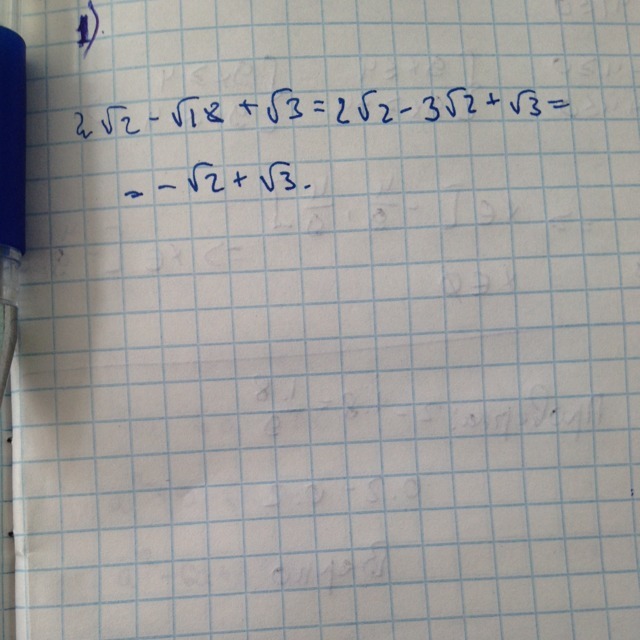 1)
2√2 - √18 + √3 = 2√2 - 3√2 + √3 =
= -√2 + √3.